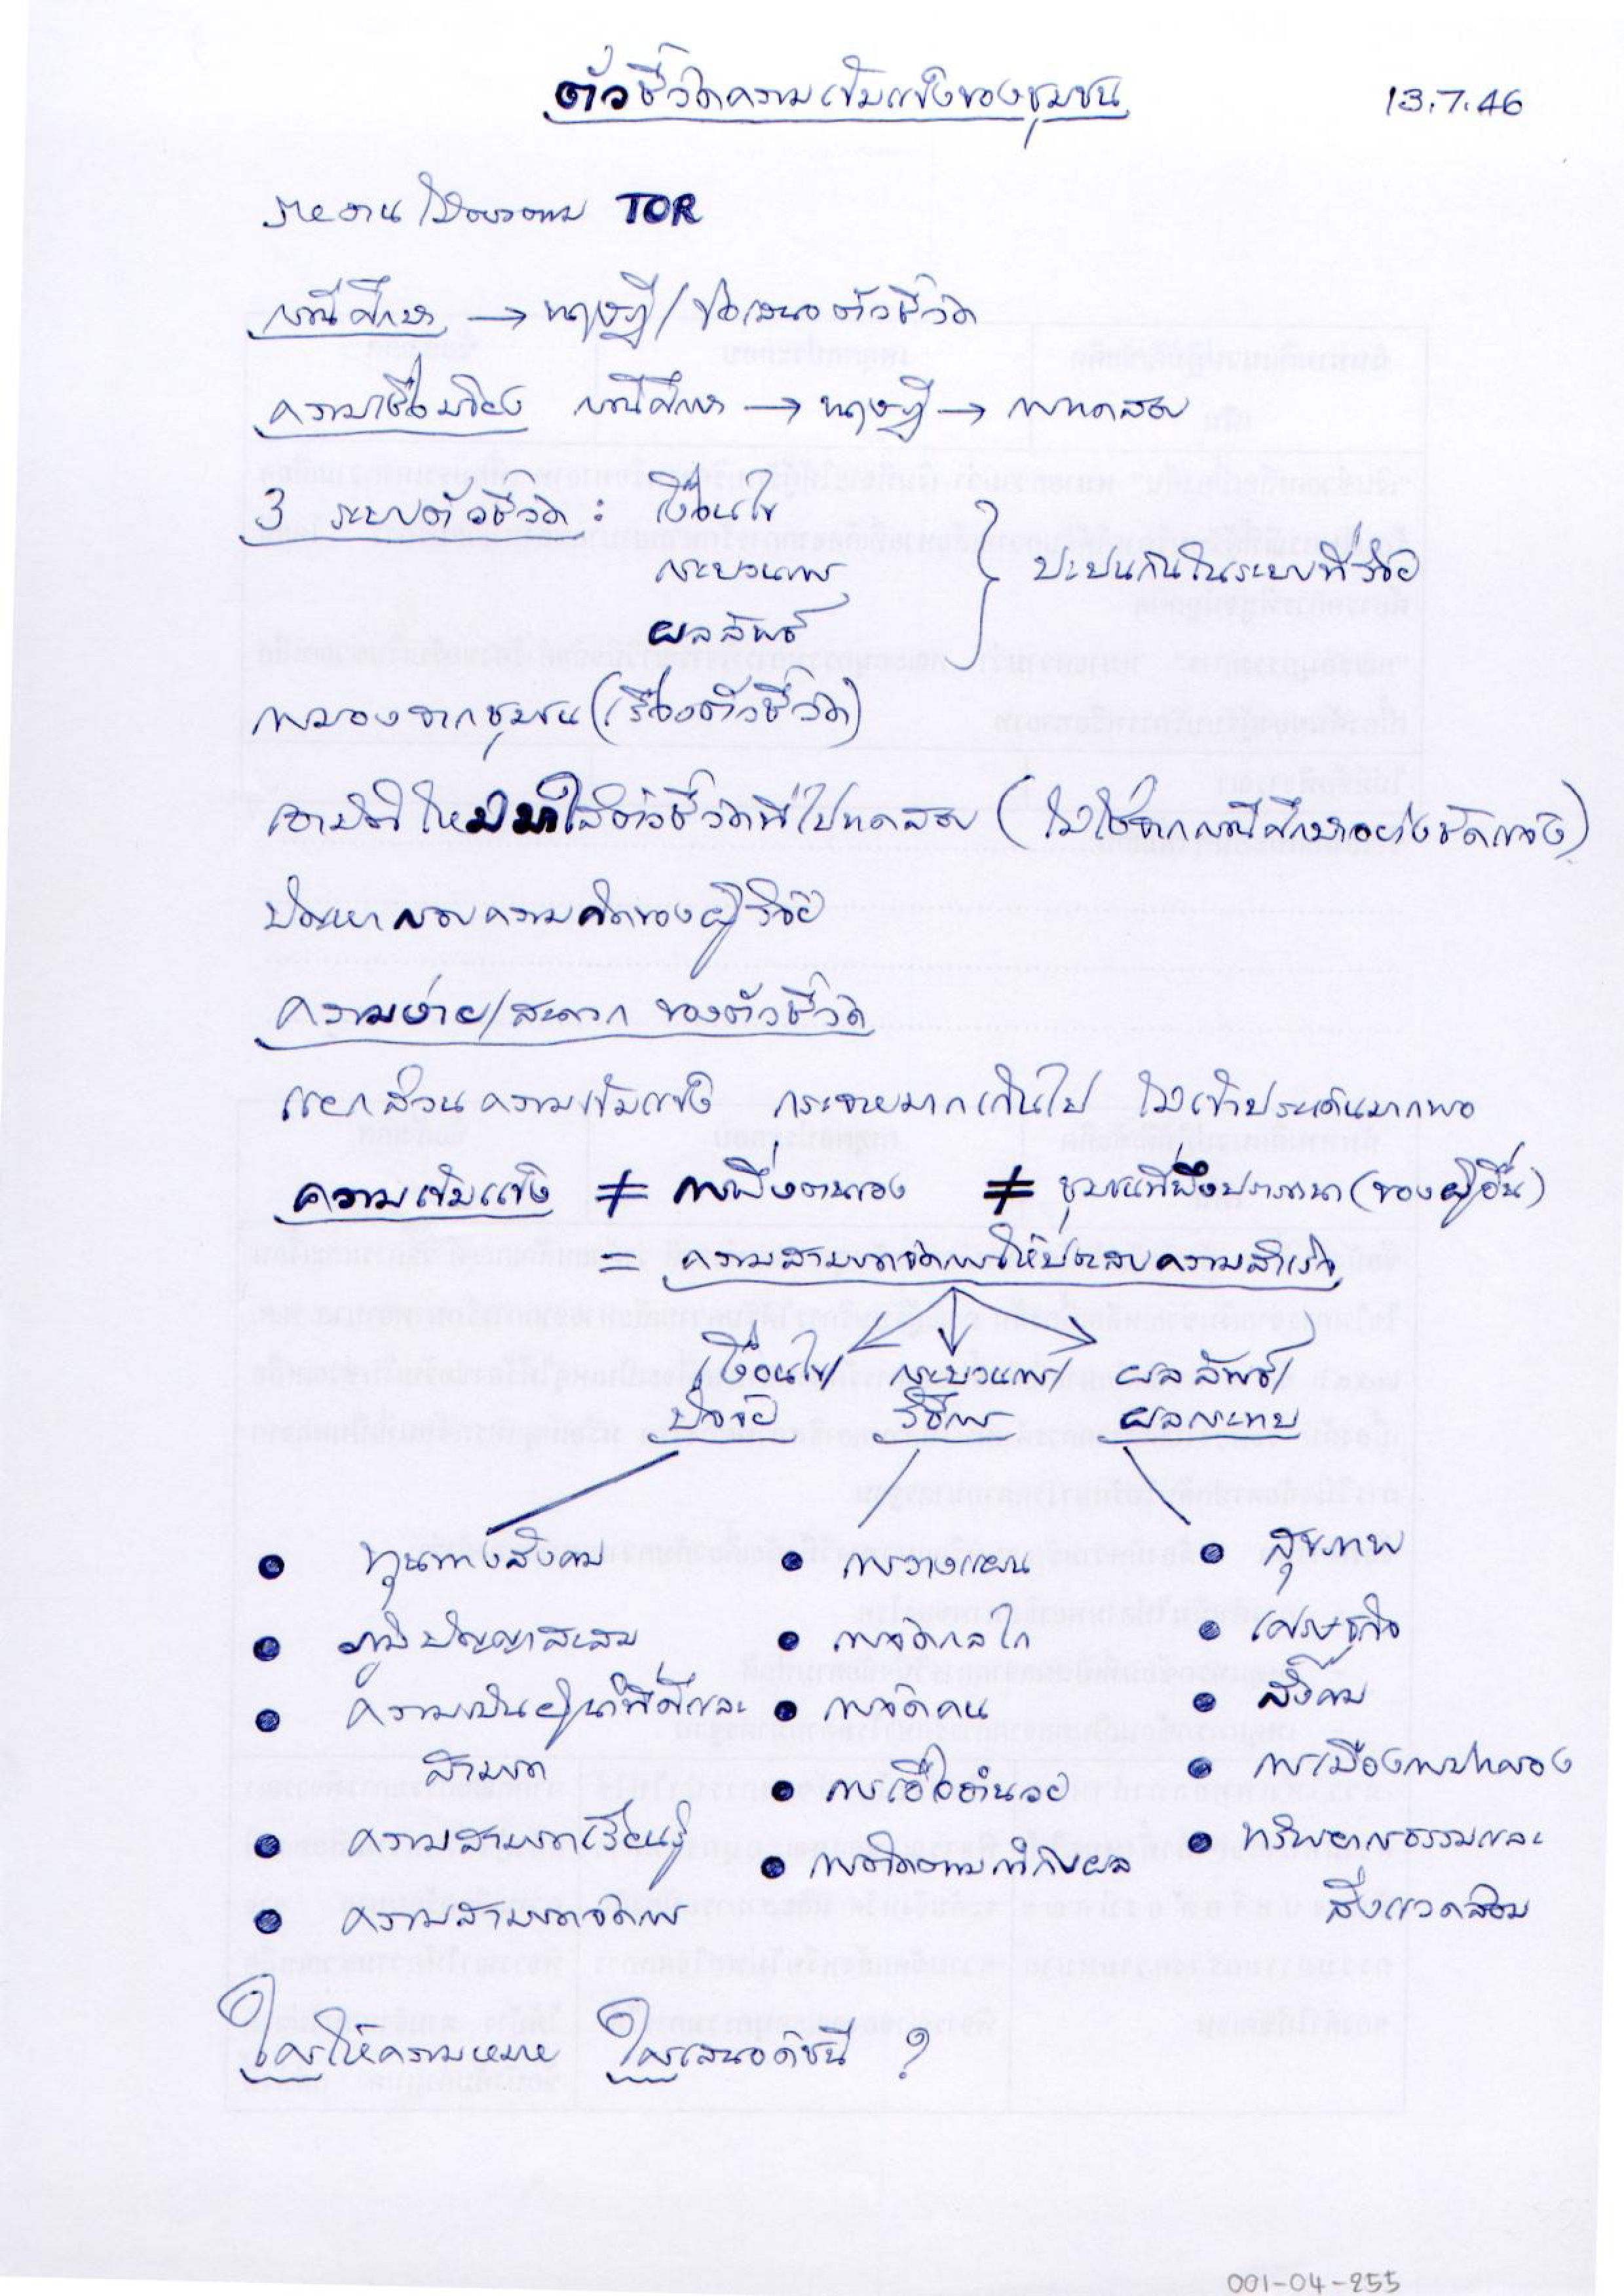 ตัวชี้วัดความเข้มแข็งของชุมชน
13.7.46
รายงานไม่ตรงตาม TOR
กรณีศึกษา → ทฤษฎี/ข้อเสนอตัวชี้วัด
ความเชื่อมโยง กรณีศึกษา → ทฤษฎี → การทดสอบ
3 ระบบตัวชี้วัด : เงื่อนไข
กระบวนการ } ปะปนกันในระบบที่วิจัย
ผลลัพธ์
การมองจากชุมชน (เรื่องตัวชี้วัด)
เอามิติใหม่มาใส่ตัวชี้วัดที่ไปทดสอบ (ไม่ใช่จากกรณีศึกษาอย่างชัดแจ้ง)
ปัญหากรอบความคิดของผู้วิจัย
ความง่าย/สะดวก ของตัวชี้วัด
แยกส่วนความเข้มแข็ง กระจายมากเกินไป ไม่เข้าประเด็นมากพอ
ความเข้มแข็ง ≠ การพึ่งตนเอง ≠ ชุมชนที่พึงปรารถนา (ของผู้อื่น)
= ความสามารถจัดการให้ประสบความสำเร็จ
เงื่อนไข/ กระบวนการ/ ผลลัพธ์/
ปัจจัย วิธีการ ผลกระทบ
• ทุนทางสังคม • การวางแผน • สุขภาพ
• ภูมิปัญญาสะสม • การจัดกลไก • เศรษฐกิจ
• ความเป็นผู้นำที่ดีและ • การจัดคน • สังคม
สามารถ • การเอื้ออำนวย • การเมืองการปกครอง
• ความสามารถเรียนรู้ • การติดตามกำกับผล • ทรัพยากรธรรมและ
• ความสามารถจัดการ สิ่งแวดล้อม
ใครให้ความหมาย ใครเสนอดัชนี ?
001-04-255